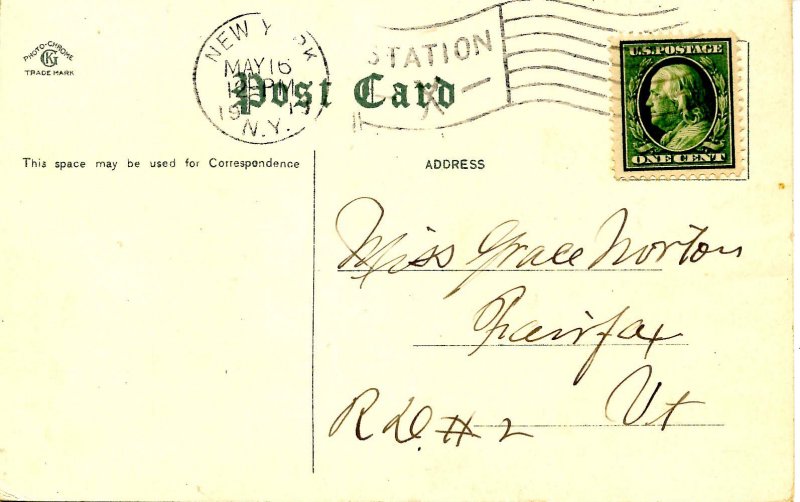 PHOTO-CHROME
GK
TRADE MARK
NEW YORK
MAY 16
12 PM
N.Y.
STATION
Post Card
U.S. POSTAGE
ONE CENT
This space may be used for Correspondence
ADDRESS
Miss Grace Norton
Fairfax
Vt
R D. # 2